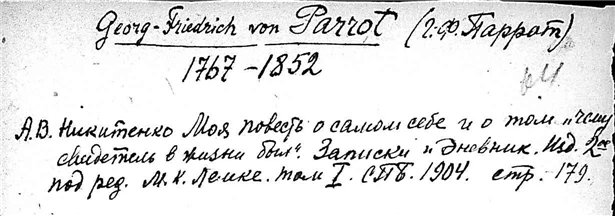 Georg-Friedrich von Parrot (Г.Ф. Паррот)
1767-1852
А.В. Никитенко Моя повесть о самом себе и о том „чему
свидетель в жизни был". Записки и Дневник. Изд. 2ое
под ред. М.К. Лемке. том I. СПБ. 1904. стр. 179.